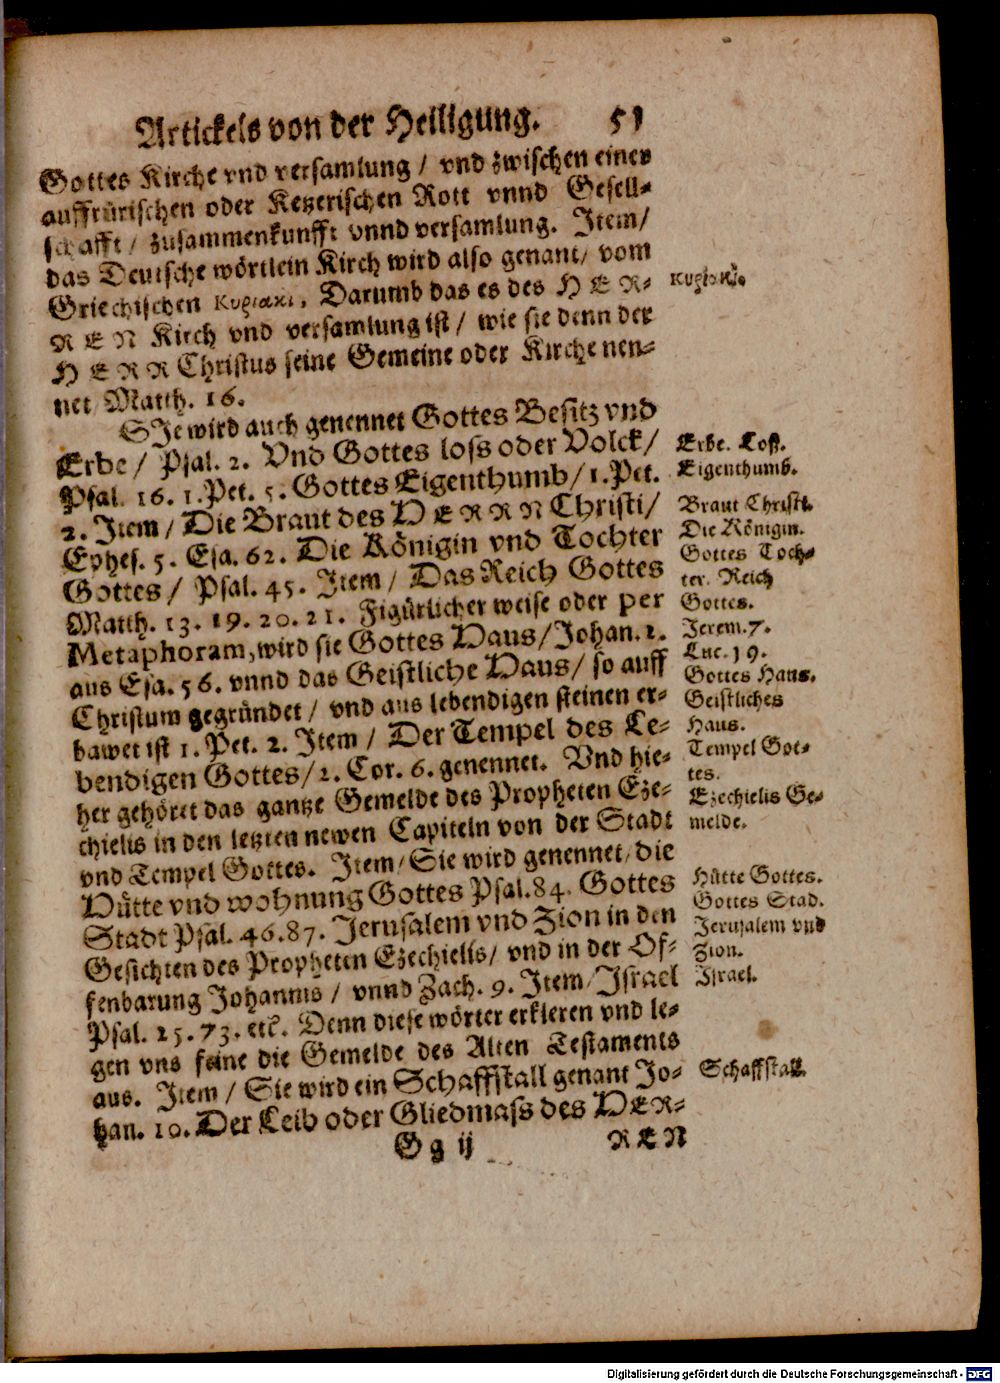 Artickels von der Heiligung. 51
Gottes Kirche vnd versamlung / vnd zwischen einer
auffrürischen oder Ketzerischen Rott vnnd Gesell-
schafft / zusammenkunfft vnnd versamlung. Item/
das Deutsche wörtlein Kirch wird also genant/ vom
Griechischen Κυριακὶ. Darumb das es des HER-
REN Kirch vnd versamlung ist / wie sie denn der
HERR Christus seine Gemeine oder Kirche nen-
net/ Matth. 16.
SIe wird auch genennet Gottes Besitz vnd
Erbe / Psal. 2. Vnd Gottes loss oder Volck/
Psal. 16. 1. Pet. 5. Gottes Eigenthumb/ 1. Pet.
2. Item / Die Braut des HERRN Christi/
Ephes. 5. Esa. 62. Die Königin vnd Tochter
Gottes / Psal. 45. Item / Das Reich Gottes
Matth. 13. 19. 20. 21. Figürlicher weise oder per
Metaphoram, wird sie Gottes Haus/ Johan. 2.
aus Esa. 56. vnnd das Geistliche Haus/ so auff
Christum gegründet / vnd aus lebendigen steinen er-
bawet ist 1. Pet. 2. Item / Der Tempel des Le-
bendigen Gottes/ 2. Cor. 6. genennet. Vnd hie-
her gehöret das gantze Gemelde des Propheten Eze-
chielis in den letzten newen Capiteln von der Stadt
vnd Tempel Gottes. Item/ Sie wird genennet/ die
Hütte vnd wohnung Gottes Psal. 84. Gottes
Stadt Psal. 46. 87. Jerusalem vnd Zion in den
Gesichten des Propheten Ezechielis/ vnd in der Of-
fenbarung Johannis / vnnd Zach. 9. Item/ Israel
Psal. 25. 73. etc. Denn diese wörter erkleren vnd le-
gen vns feine die Gemelde des Alten Testaments
aus. Item / Sie wird ein Schaffstall genant Jo-
han. 10. Der Leib oder Gliedmass des HER-
Gg ij REN
Κυριακὶ.
Erbe. Loss.
Eigenthumb.
Braut Christi.
Die Königin.
Gottes Toch-
ter. Reich
Gottes.
Jerem. 7.
Luc. 19.
Gottes Haus.
Geistliches
Haus.
Tempel Got-
tes.
Ezechielis Ge-
melde.
Hütte Gottes.
Gottes Stad.
Jerusalem vnd
Zion.
Israel.
Schaffstall.
Digitalisierung gefördert durch die Deutsche Forschungsgemeinschaft - DFG